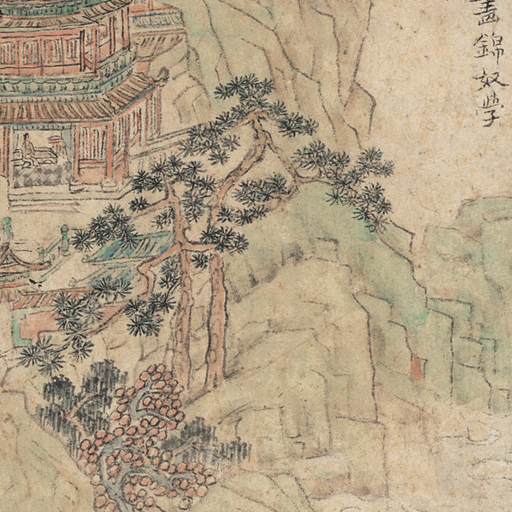 畫錦奴學